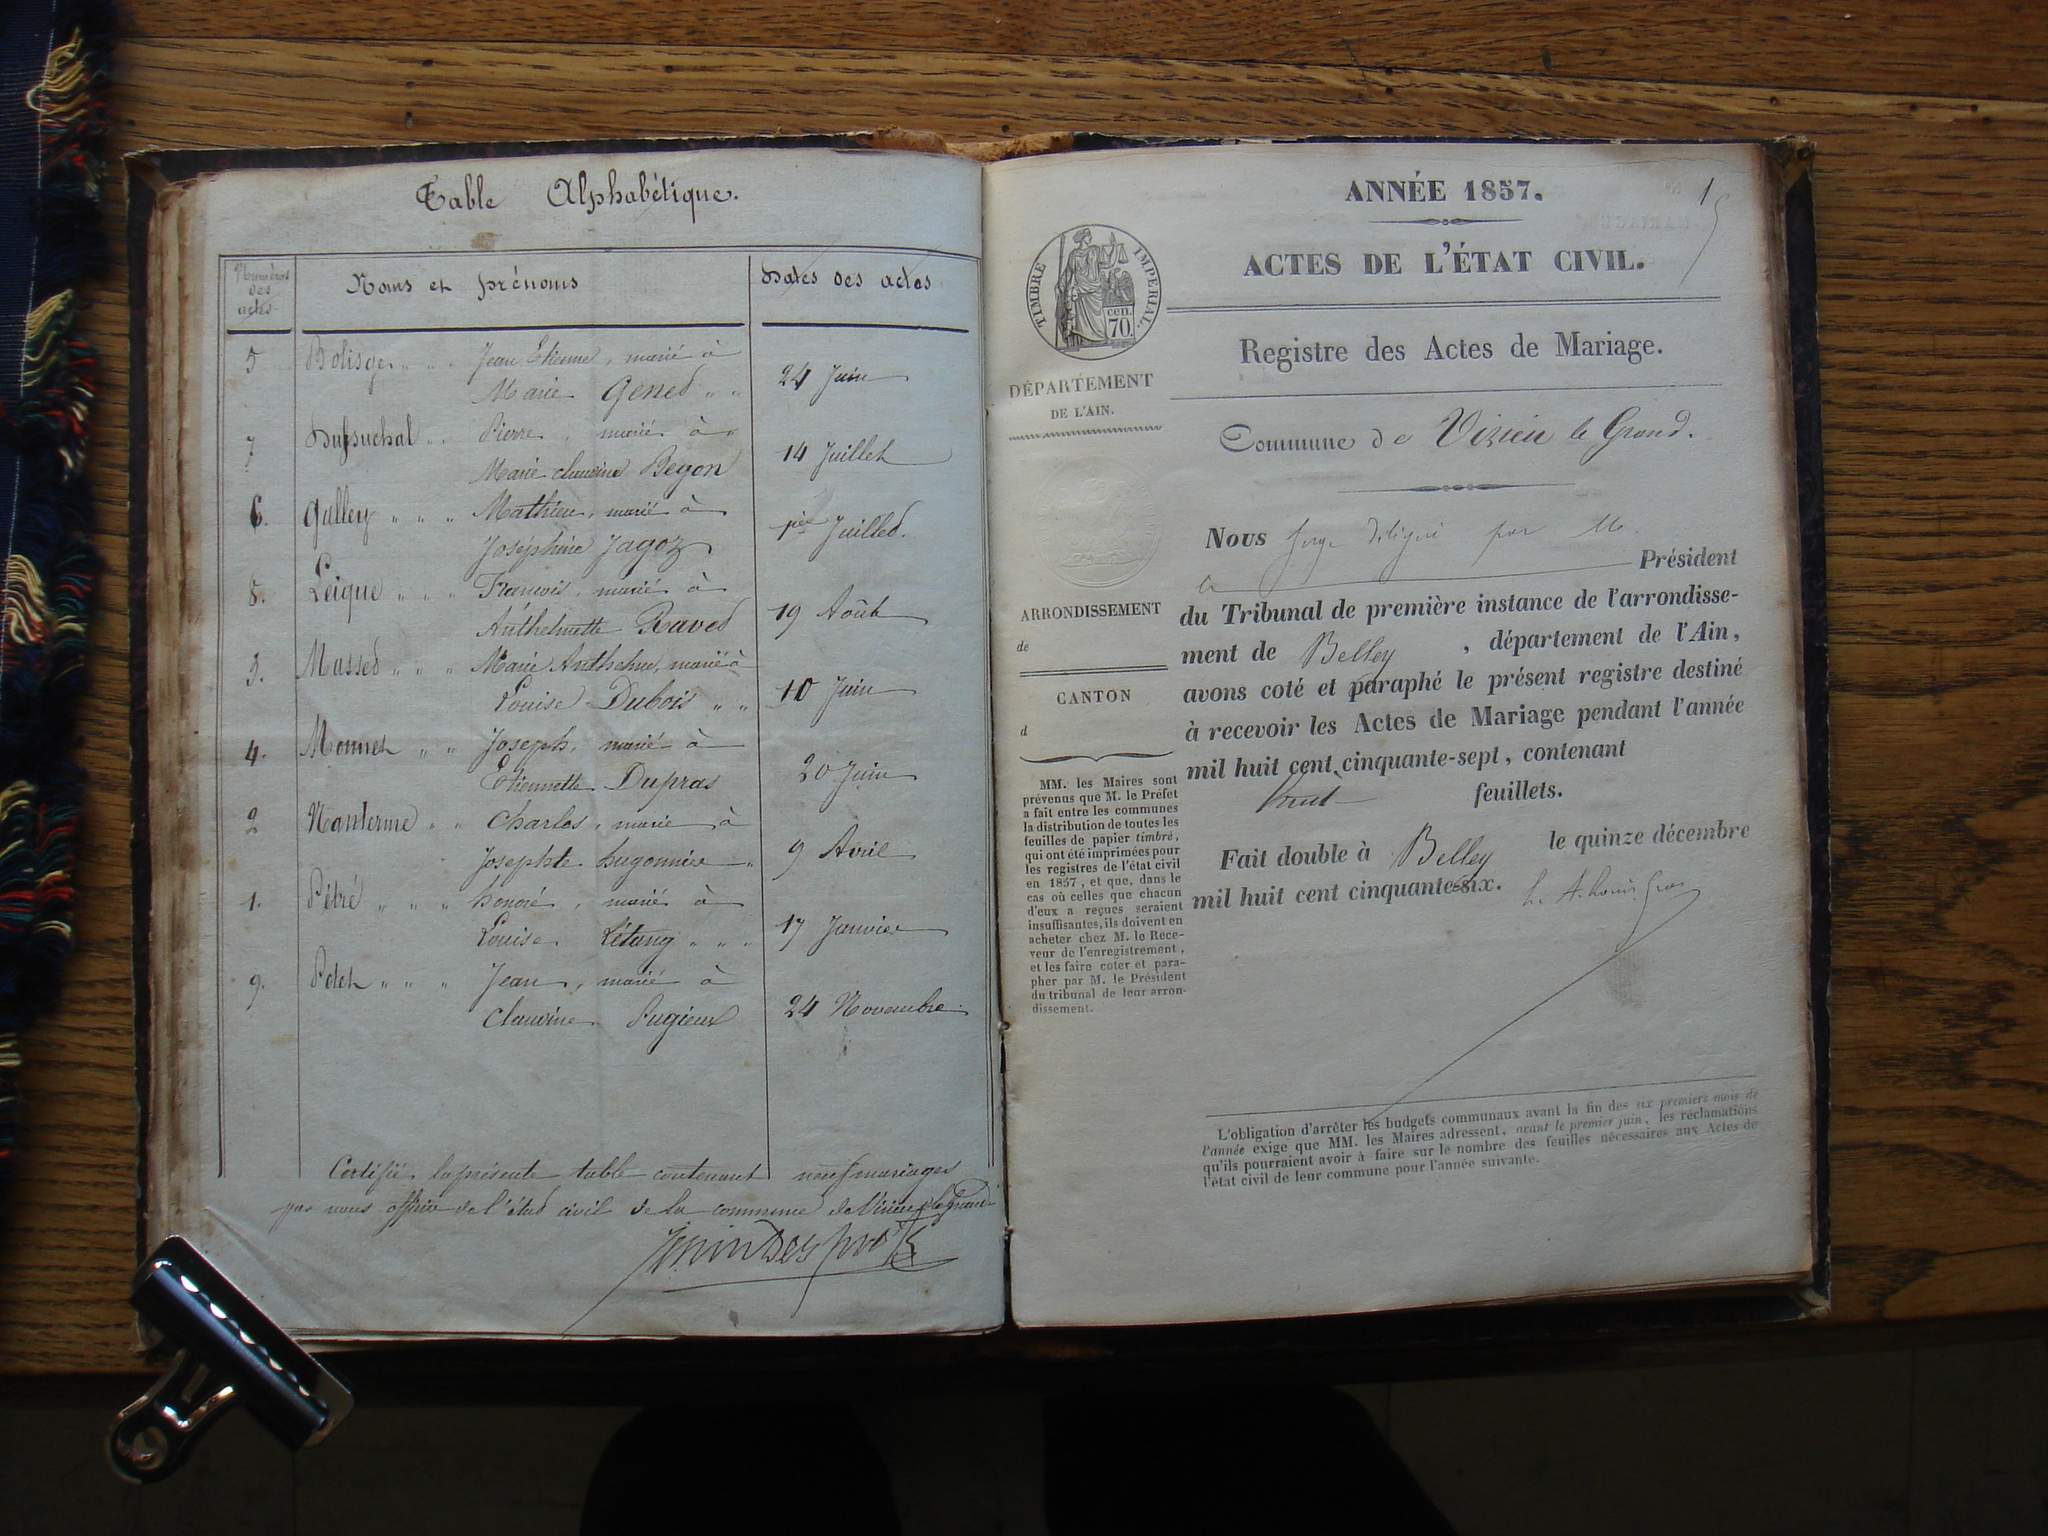 Table Alphabétique.
Numéros
des
actes
Noms et prénoms
Dates des actes
5 Bolisge " " Jean Etienne, marié à
Marie Gened " "
24 Juin
7 Dussuchal " " Pierre, marié à
Marie claudine Begon
14 Juillet
6. Gallery " " " Mathieu, marié à
Joséphine Jagoz
1er Juillet.
8. Leique " " " Francois, marié à
Anthelmette Raved
19 Août
3. Massed " " " Marie Anthelme, marié à
Louise Dubois " "
10 Juin
4. Monnet " " Joseph, marié à
Etiennette Dupras
20 Juin
2 Nanterme " " Charles, marié à
Josephte hugonnier "
9 Avril
1. Pétré " " " honoré, marié à
Louise Létang " " "
17 Janvier
9. Petet " " " Jean, marié à
Claudine Pugieux
24 Novembre
Certifié la présente table contenant neuf mariages
par nous officier de l'état civil de la commune de Virieu le grand
1
ANNÉE 1857.
ACTES DE L'ÉTAT CIVIL.
TIMBRE IMPERIAL.
cen.
70.
Registre des Actes de Mariage.
DÉPARTEMENT
DE L'AIN.
Commune de Virieu le Grand.
Nous Juge délégué par M.
le Président
du Tribunal de première instance de l'arrondisse-
ment de Belley , département de l'Ain,
avons coté et paraphé le présent registre destiné
à recevoir les Actes de Mariage pendant l'année
mil huit cent cinquante-sept, contenant
huit feuillets.
Fait double à Belley le quinze décembre
mil huit cent cinquante-six.
ARRONDISSEMENT
de
CANTON
d
MM. les Maires sont
prévenus que M. le Préfet
a fait entre les communes
la distribution de toutes les
feuilles de papier timbré,
qui ont été imprimées pour
les registres de l'état civil
en 1857, et que, dans le
cas où celles que chacun
d'eux a reçues seraient
insuffisantes, ils doivent en
acheter chez M. le Rece-
veur de l'enregistrement,
et les faire coter et para-
pher par M. le Président
du tribunal de leur arron-
dissement.
L'obligation d'arrêter les budgets communaux avant la fin des six premiers mois de
l'année exige que MM. les Maires adressent, avant le premier juin, les réclamations
qu'ils pourraient avoir à faire sur le nombre des feuilles nécessaires aux Actes de
l'état civil de leur commune pour l'année suivante.